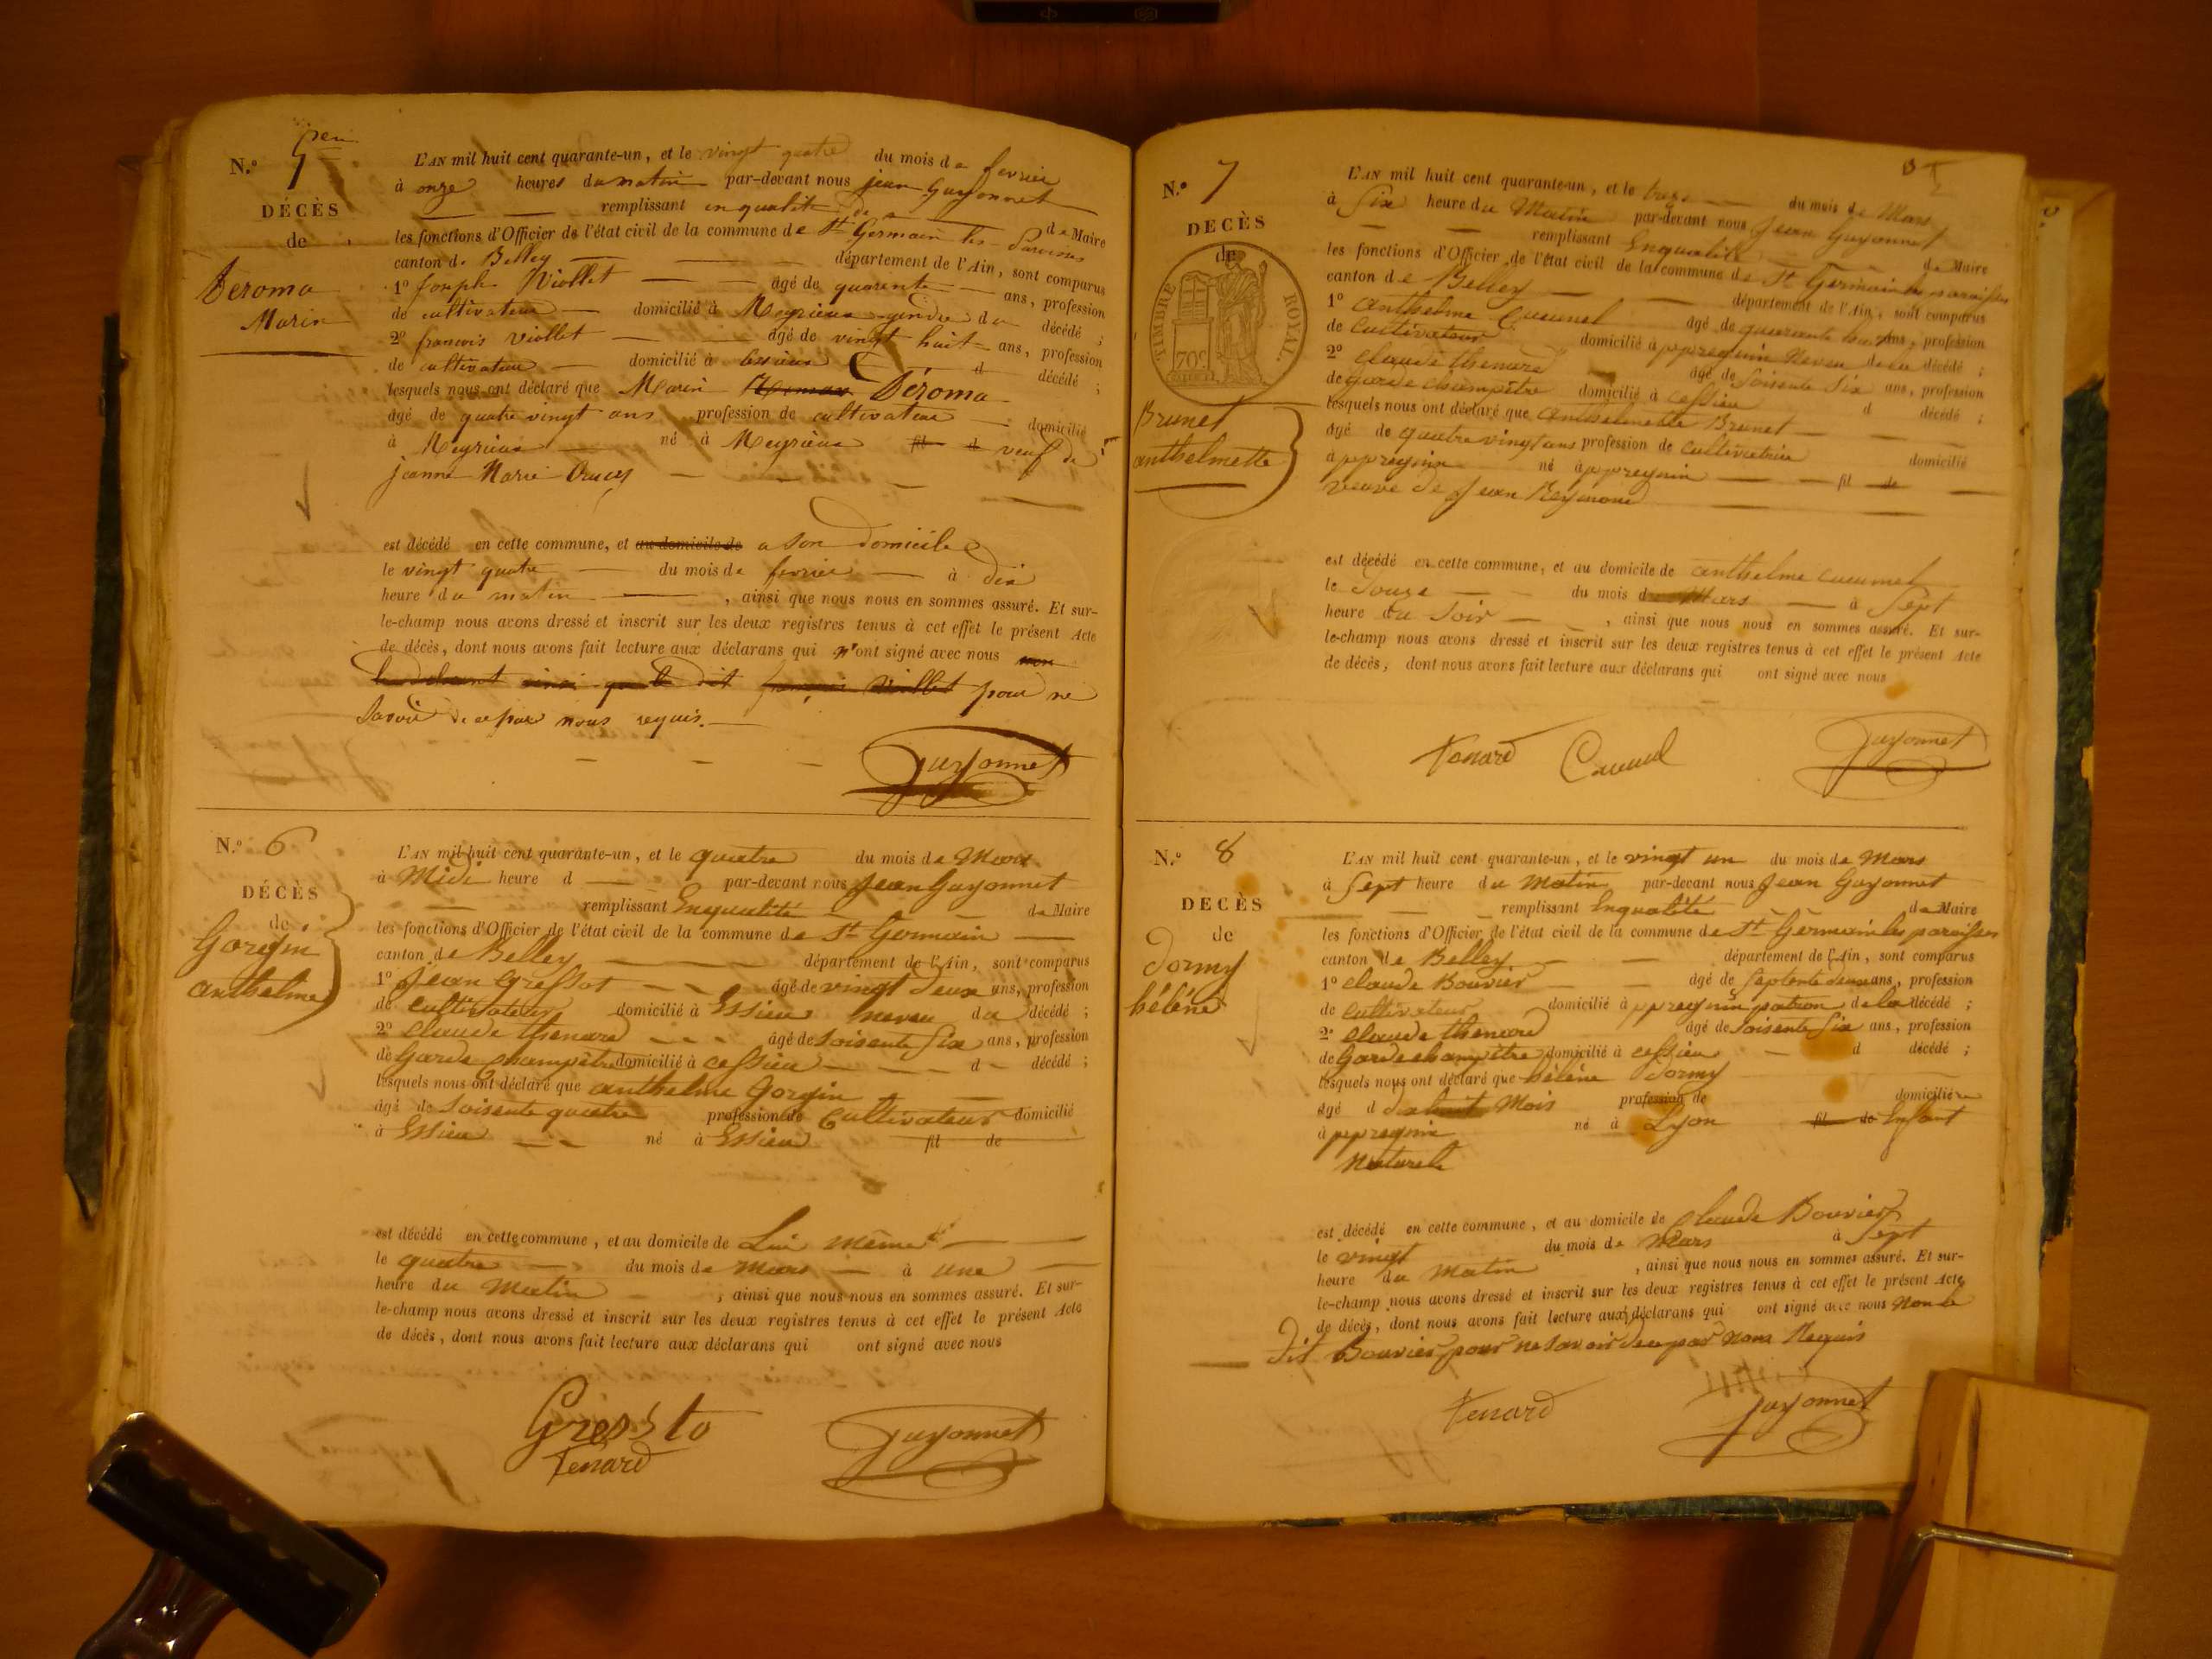 N.º 5
DÉCÈS
de
Deroma
Marin
L'AN mil huit cent quarante-un, et le vingt quatre du mois de fevrier
à onze heures du matin par-devant nous jean Guyonnet
remplissant en qualité de de Maire
les fonctions d'Officier de l'état civil de la commune de St Germain les Paroisses
canton de Belley département de l'Ain, sont comparus
1º joseph Viollet âgé de quarente ans, profession
de cultivateur domicilié à Meyrieux gendre du décédé ;
2º francois Viollet âgé de vingt huit ans, profession
de cultivateur domicilié à d décédé ;
lesquels nous ont déclaré que Marin Déroma
âgé de quatre vingt ans profession de cultivateur domicilié
à Meyrieux né à Meyrieux fil d veuf de
jeanne Marie
est décédé en cette commune, et au domicile de a son domicile
le vingt quatre du mois de fevrier à dix
heure du matin , ainsi que nous nous en sommes assuré. Et sur-
le-champ nous avons dressé et inscrit sur les deux registres tenus à cet effet le présent Acte
de décès, dont nous avons fait lecture aux déclarans qui n'ont signé avec nous non
le declarant ainsi que le dit françois Viollet pour ne
savoir de ce par nous requis.
Guyonnet
N.º 6
DÉCÈS
de
Gorgin
anthelme
L'AN mil huit cent quarante-un, et le quatre du mois de Mars
à Midi heure d par-devant nous Jean Guyonnet
remplissant Enqualité de Maire
les fonctions d'Officier de l'état civil de la commune de St Germain
canton de Belley département de l'Ain, sont comparus
1º Jean Gressot âgé de vingt deux ans, profession
de cultivateur domicilié à Essieu neveu du décédé ;
2º Claude thenard âgé de soisente six ans, profession
de Garde champêtre domicilié à cessieu d décédé ;
lesquels nous ont déclaré que anthelme Gorgin
âgé de soisente quatre profession de Cultivateur domicilié
à Essieu né à Essieu fil de
est décédé en cette commune, et au domicile de Lui même
le quatre du mois de mars à une
heure du Matin , ainsi que nous nous en sommes assuré. Et sur-
le-champ nous avons dressé et inscrit sur les deux registres tenus à cet effet le présent Acte
de décès, dont nous avons fait lecture aux déclarans qui ont signé avec nous
Gressto
Tenard
Guyonnet
N.º 7
DECÈS
de
TIMBRE ROYAL
70c
Brunet
anthelmette
L'AN mil huit cent quarante-un, et le treze du mois de Mars
à six heure du Matin par-devant nous Jean Guyonnet
remplissant Enqualité de Maire
les fonctions d'Officier de l'état civil de la commune de St Germain les paroisses
canton de Belley département de l'Ain, sont comparus
1º anthelme Cucunel âgé de quarante ans, profession
de Cultivateur domicilié à ppregnin Neveu de la décédé ;
2º Claude thenard âgé de soisente six ans, profession
de garde champêtre domicilié à cessieu d décédé ;
lesquels nous ont déclaré que anthelmette Brunet
âgé de quatre vingt ans profession de cultivatrice domicilié
à ppregnin né à ppregnin fil de
veuve de Jean Reymond
est décédé en cette commune, et au domicile de anthelme
le Douze du mois de Mars à sept
heure du soir , ainsi que nous nous en sommes assuré. Et sur-
le-champ nous avons dressé et inscrit sur les deux registres tenus à cet effet le présent Acte
de décès, dont nous avons fait lecture aux déclarans qui ont signé avec nous
Tenard
Guyonnet
N.º 8
DECÈS
de
Dormy
hélène
L'AN mil huit cent quarante-un, et le vingt un du mois de Mars
à sept heure du Matin par-devant nous Jean Guyonnet
remplissant Enqualité de Maire
les fonctions d'Officier de l'état civil de la commune de St Germain les paroisses
canton de Belley département de l'Ain, sont comparus
1º Claude Bouvier âgé de septente deux ans, profession
de Cultivateur domicilié à ppregnin patron de la décédé ;
2º Claude thenard âgé de soisente six ans, profession
de Garde champêtre domicilié à cessieu d décédé ;
lesquels nous ont déclaré que hélène Dormy
âgé d huit Mois profession de domicilié
à ppregnin né à Lyon fil de Enfant
Naturele
est décédé en cette commune, et au domicile de Claude Bouvier
le vingt du mois de Mars à sept
heure du Matin , ainsi que nous nous en sommes assuré. Et sur-
le-champ nous avons dressé et inscrit sur les deux registres tenus à cet effet le présent Acte
de décès, dont nous avons fait lecture aux déclarans qui ont signé avec nous Non le
dit Bouvier pour ne savoir de ce par nous Requis
Tenard
Guyonnet